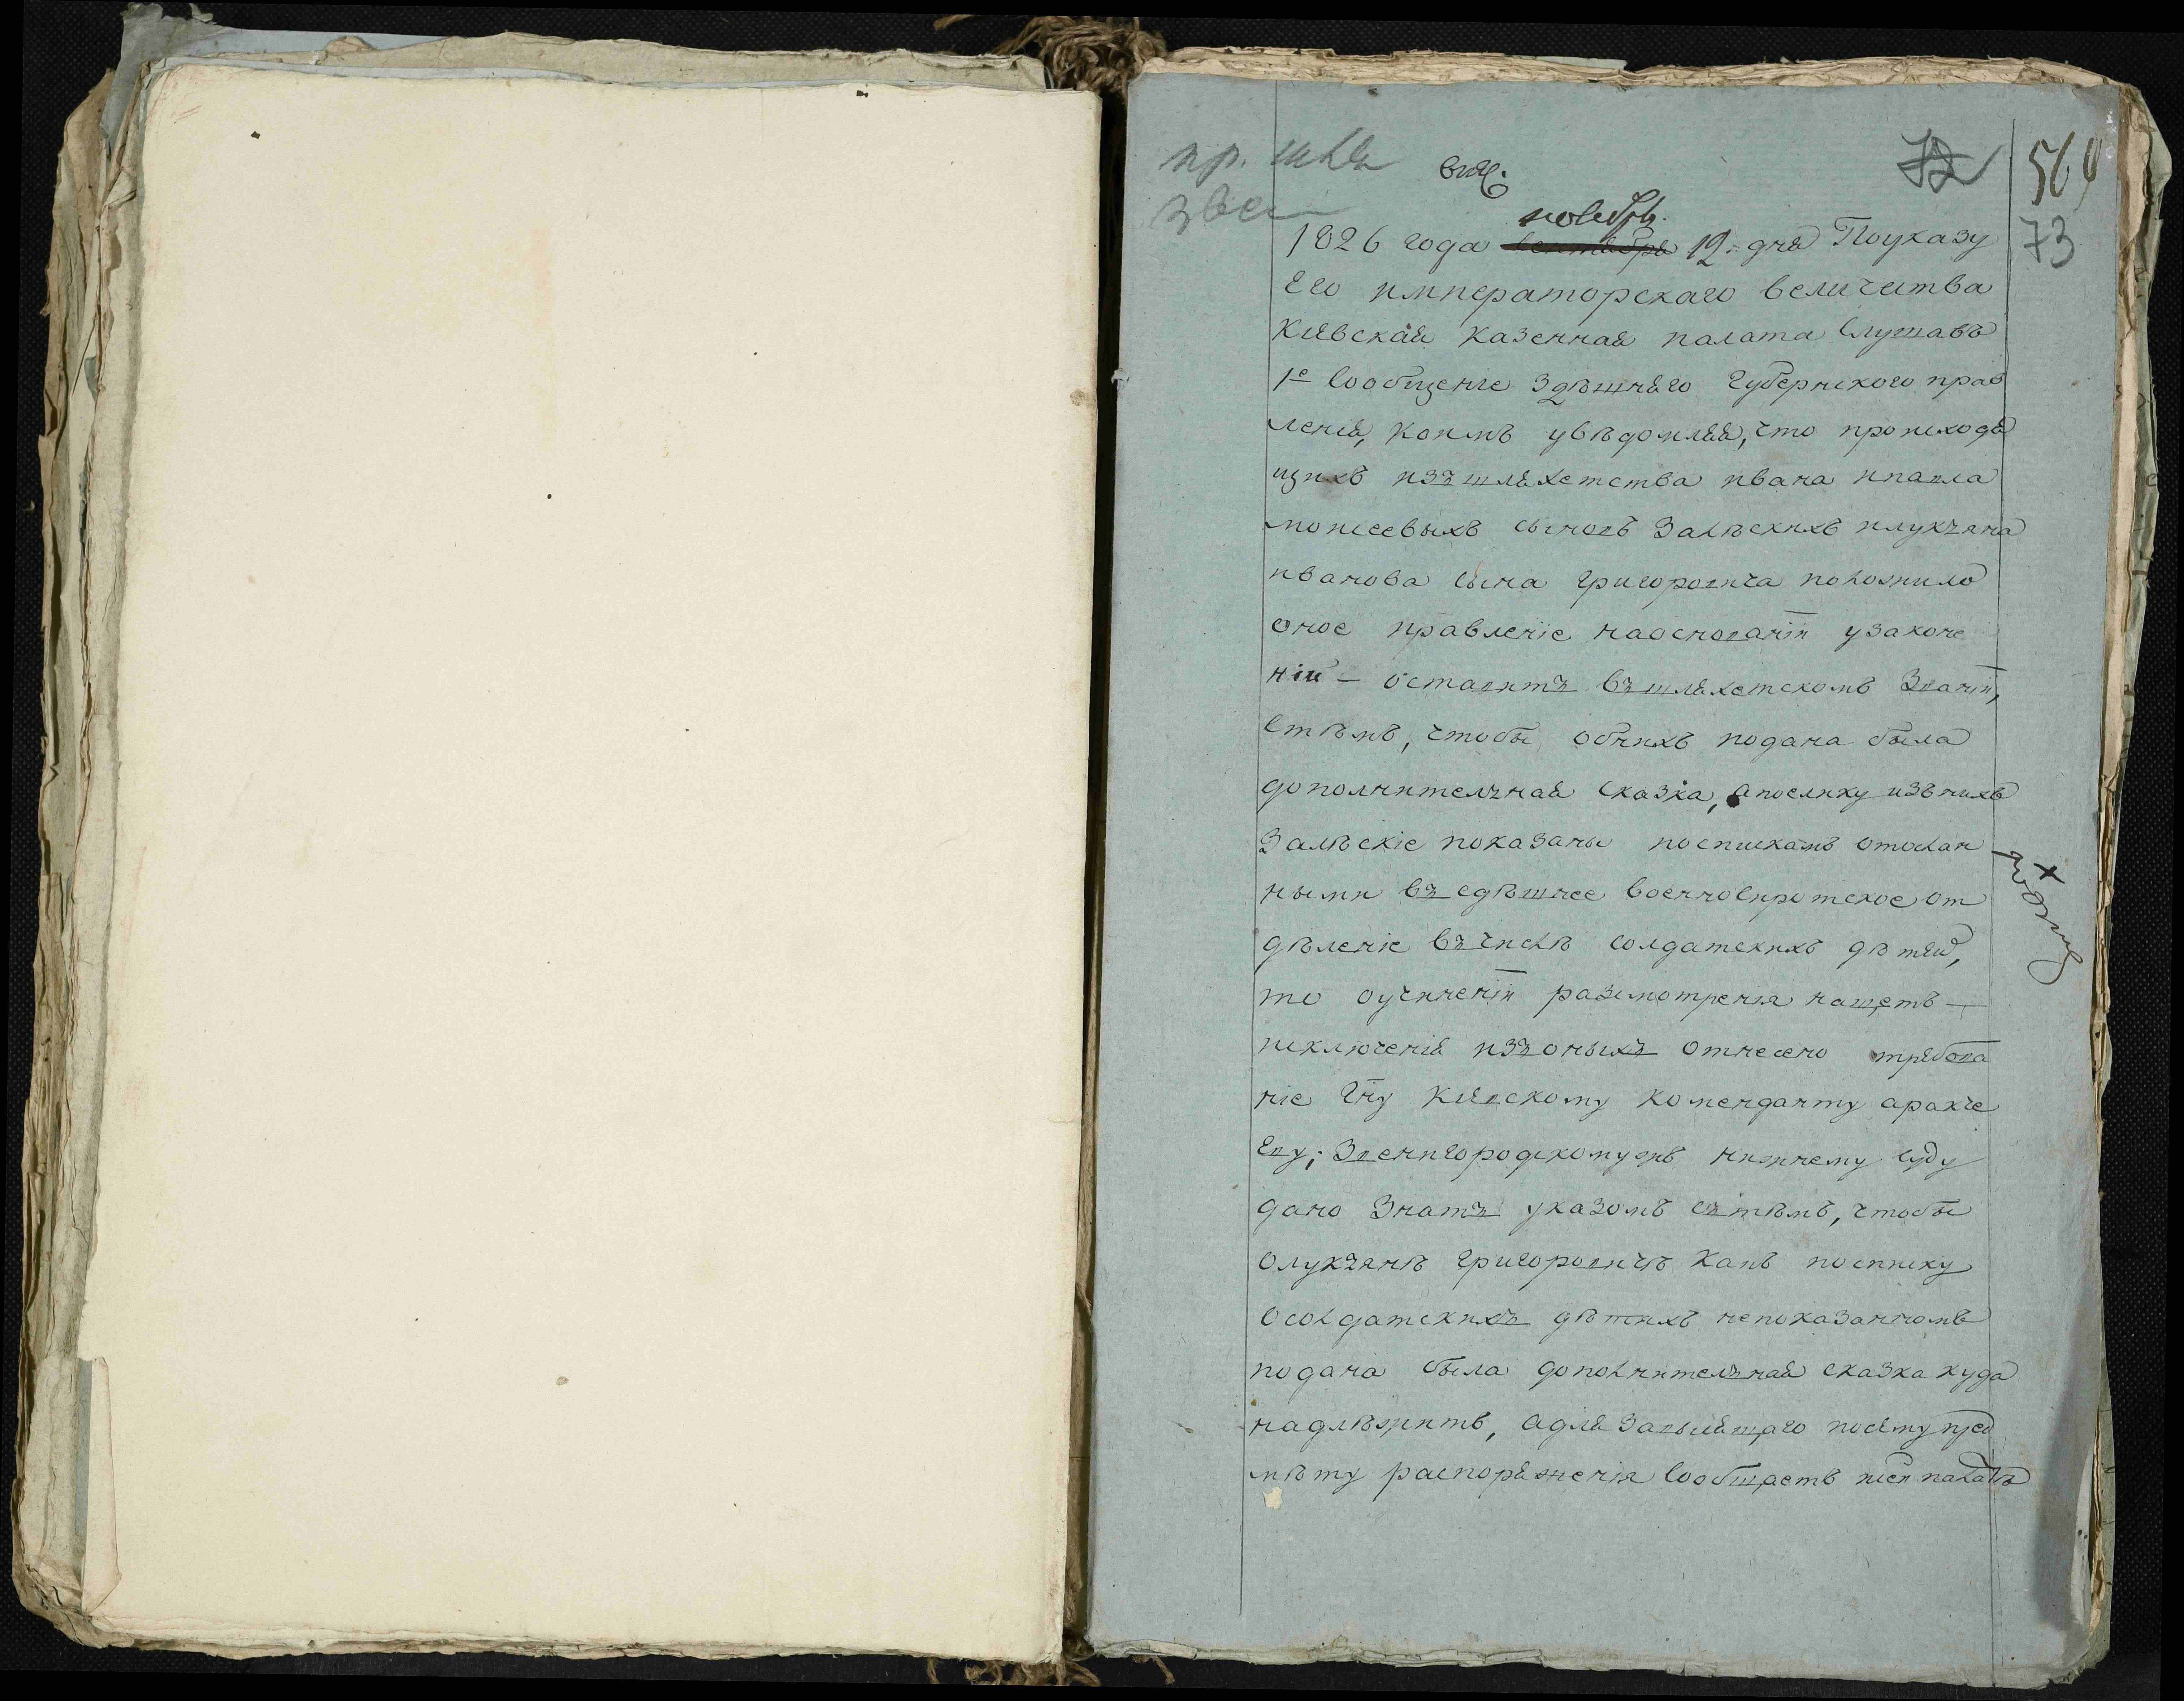 564
73
ноября.
1826 года сентября 12. дня Поуказу
Его императорскаго величества
Кіевская казенная палата Слушавъ
1е Сообщеніе Здѣшняго Губернского прав
ленія, коимъ увѣдомляя, что происходя
щихъ изъ шляхетства ивана ипавла
моисеевыхъ сыновъ Залѣскихъ илукъяна
иванова сына григоровича положило
оное правленіе наоснованіи узаконе
ній – оставить въ шляхетскомъ Званіи,
Стѣмъ, чтобы обнихъ подана была
дополнительная сказка, апоелику изънихъ
Залѣскіе показаны поспискамъ отослан
ными въ сдѣшнее военносиротское от
дѣленіе въ числѣ солдатскихъ дѣтей,
то оучиненіи разсмотренія нащетъ –
исключенія изъ оныхъ отнесено требова
ніе Гну Кіевскому коменданту аракче
Еву; Звенигородскомужъ нижнему суду
дано Знать указомъ сътѣмъ, чтобы
Олукъянѣ григоровичѣ какъ посписку
Осолдатскихъ дѣтяхъ непоказанномъ
подана была дополнительная сказка куда
надлѣжитъ, адля Зависящаго посему пред
мѣту распоряженія Сообщаетъ исей палатѣ